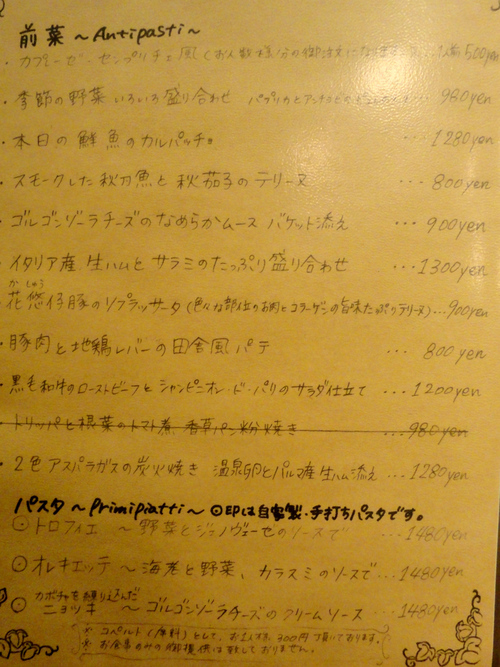 前菜 〜Antipasti〜
・カプレーゼ・センプリチェ風 (お人数様分の御注文になります) 1人前 500yen
・季節の野菜 いろいろ盛り合わせ パプリカとアンチョビの … 980yen
・本日の鮮魚のカルパッチョ … 1280yen
・スモークした秋刀魚と秋茄子のテリーヌ … 800yen
・ゴルゴンゾーラチーズのなめらかムース バケット添え … 900yen
・イタリア産 生ハムとサラミのたっぷり盛り合わせ … 1300yen
かしゅう
・花悠仔豚のソプラッサータ (色々な部位のお肉とコラーゲンの旨味たっぷりテリーヌ) … 900yen
・豚肉と地鶏レバーの田舎風パテ … 800yen
・黒毛和牛のローストビーフとシャンピニオン・ド・パリのサラダ仕立て … 1200yen
・トリッパと根菜のトマト煮 香草パン粉焼き … 980yen
・2色アスパラガスの炭火焼き 温泉卵とパルマ産生ハム添え … 1280yen
パスタ 〜Primipiatti〜 ⊙印は自家製・手打ちパスタです。
⊙トロフィエ 〜野菜とジェノヴェーゼのソースで … 1480yen
⊙オレキエッテ 〜海老と野菜、カラスミのソースで … 1480yen
カボチャを練り込んだ
⊙ニョッキ 〜ゴルゴンゾーラチーズのクリームソース … 1480yen
※ コペルト(席料)として、お1人様 300円頂いております。
※ お食事のみの御提供は致しておりません。